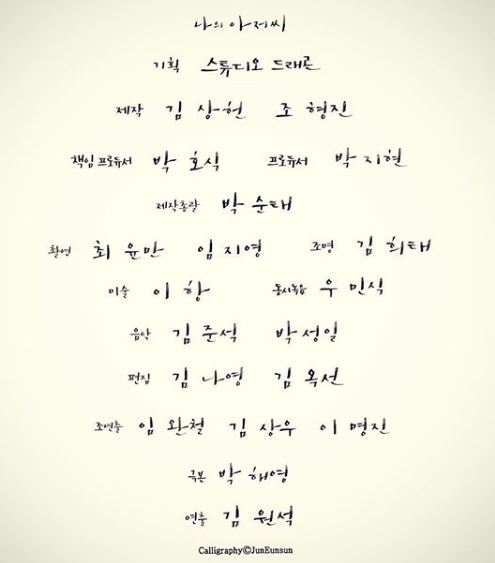 나의 아저씨
기획 스튜디오 드래곤
제작 김상헌 조형진
책임프로듀서 박호식 프로듀서 박지현
제작총괄 박순태
촬영 최윤만 임지영 조명 김희태
미술 이항 동시녹음 우민식
음악 김준석 박성일
편집 김나영 김옥선
조연출 임완철 김상우 이명진
극본 박해영
연출 김원석
Calligraphy©JunEunsun